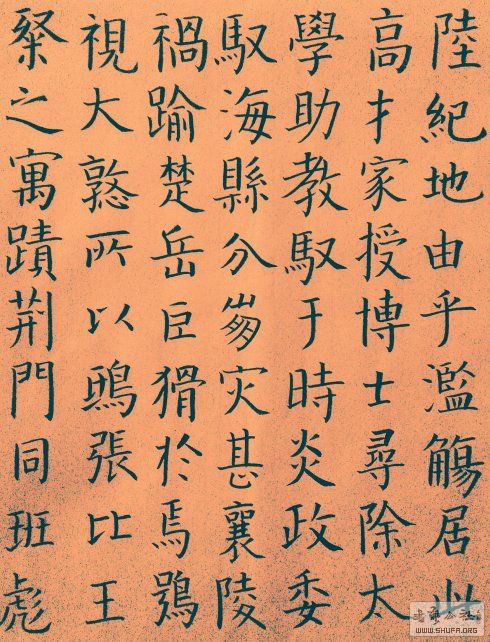 陸紀地由乎濫觴居以
高才家授博士尋除太
學助教馭于時炎政委
馭海縣分崩災甚襄陵
禍踰楚岳巨猾於焉鴞
視大憝所以鴟張比王
粲之寓蹟荊門同班彪
WWW.SHUFA.ORG